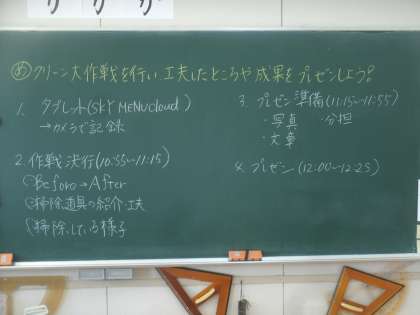 め クリーン大作戦を行い、工夫したところや成果をプレゼンしよう!
1. タブレット(SKY MENU cloud)
→カメラで記録
2. 作戦決行(10:55~11:15)
Before→After
掃除道具の紹介・工夫
掃除している様子
3. プレゼン準備(11:15~11:55)
・写真 ・分担
・文章
4. プレゼン(12:00~12:25)